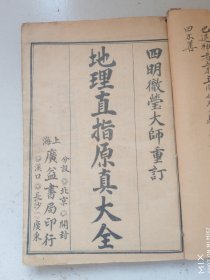 四明徹瑩大師重訂
地理直指原真大全
上海
廣益書局印行
分設 北京 開封
漢口 長沙 廣東